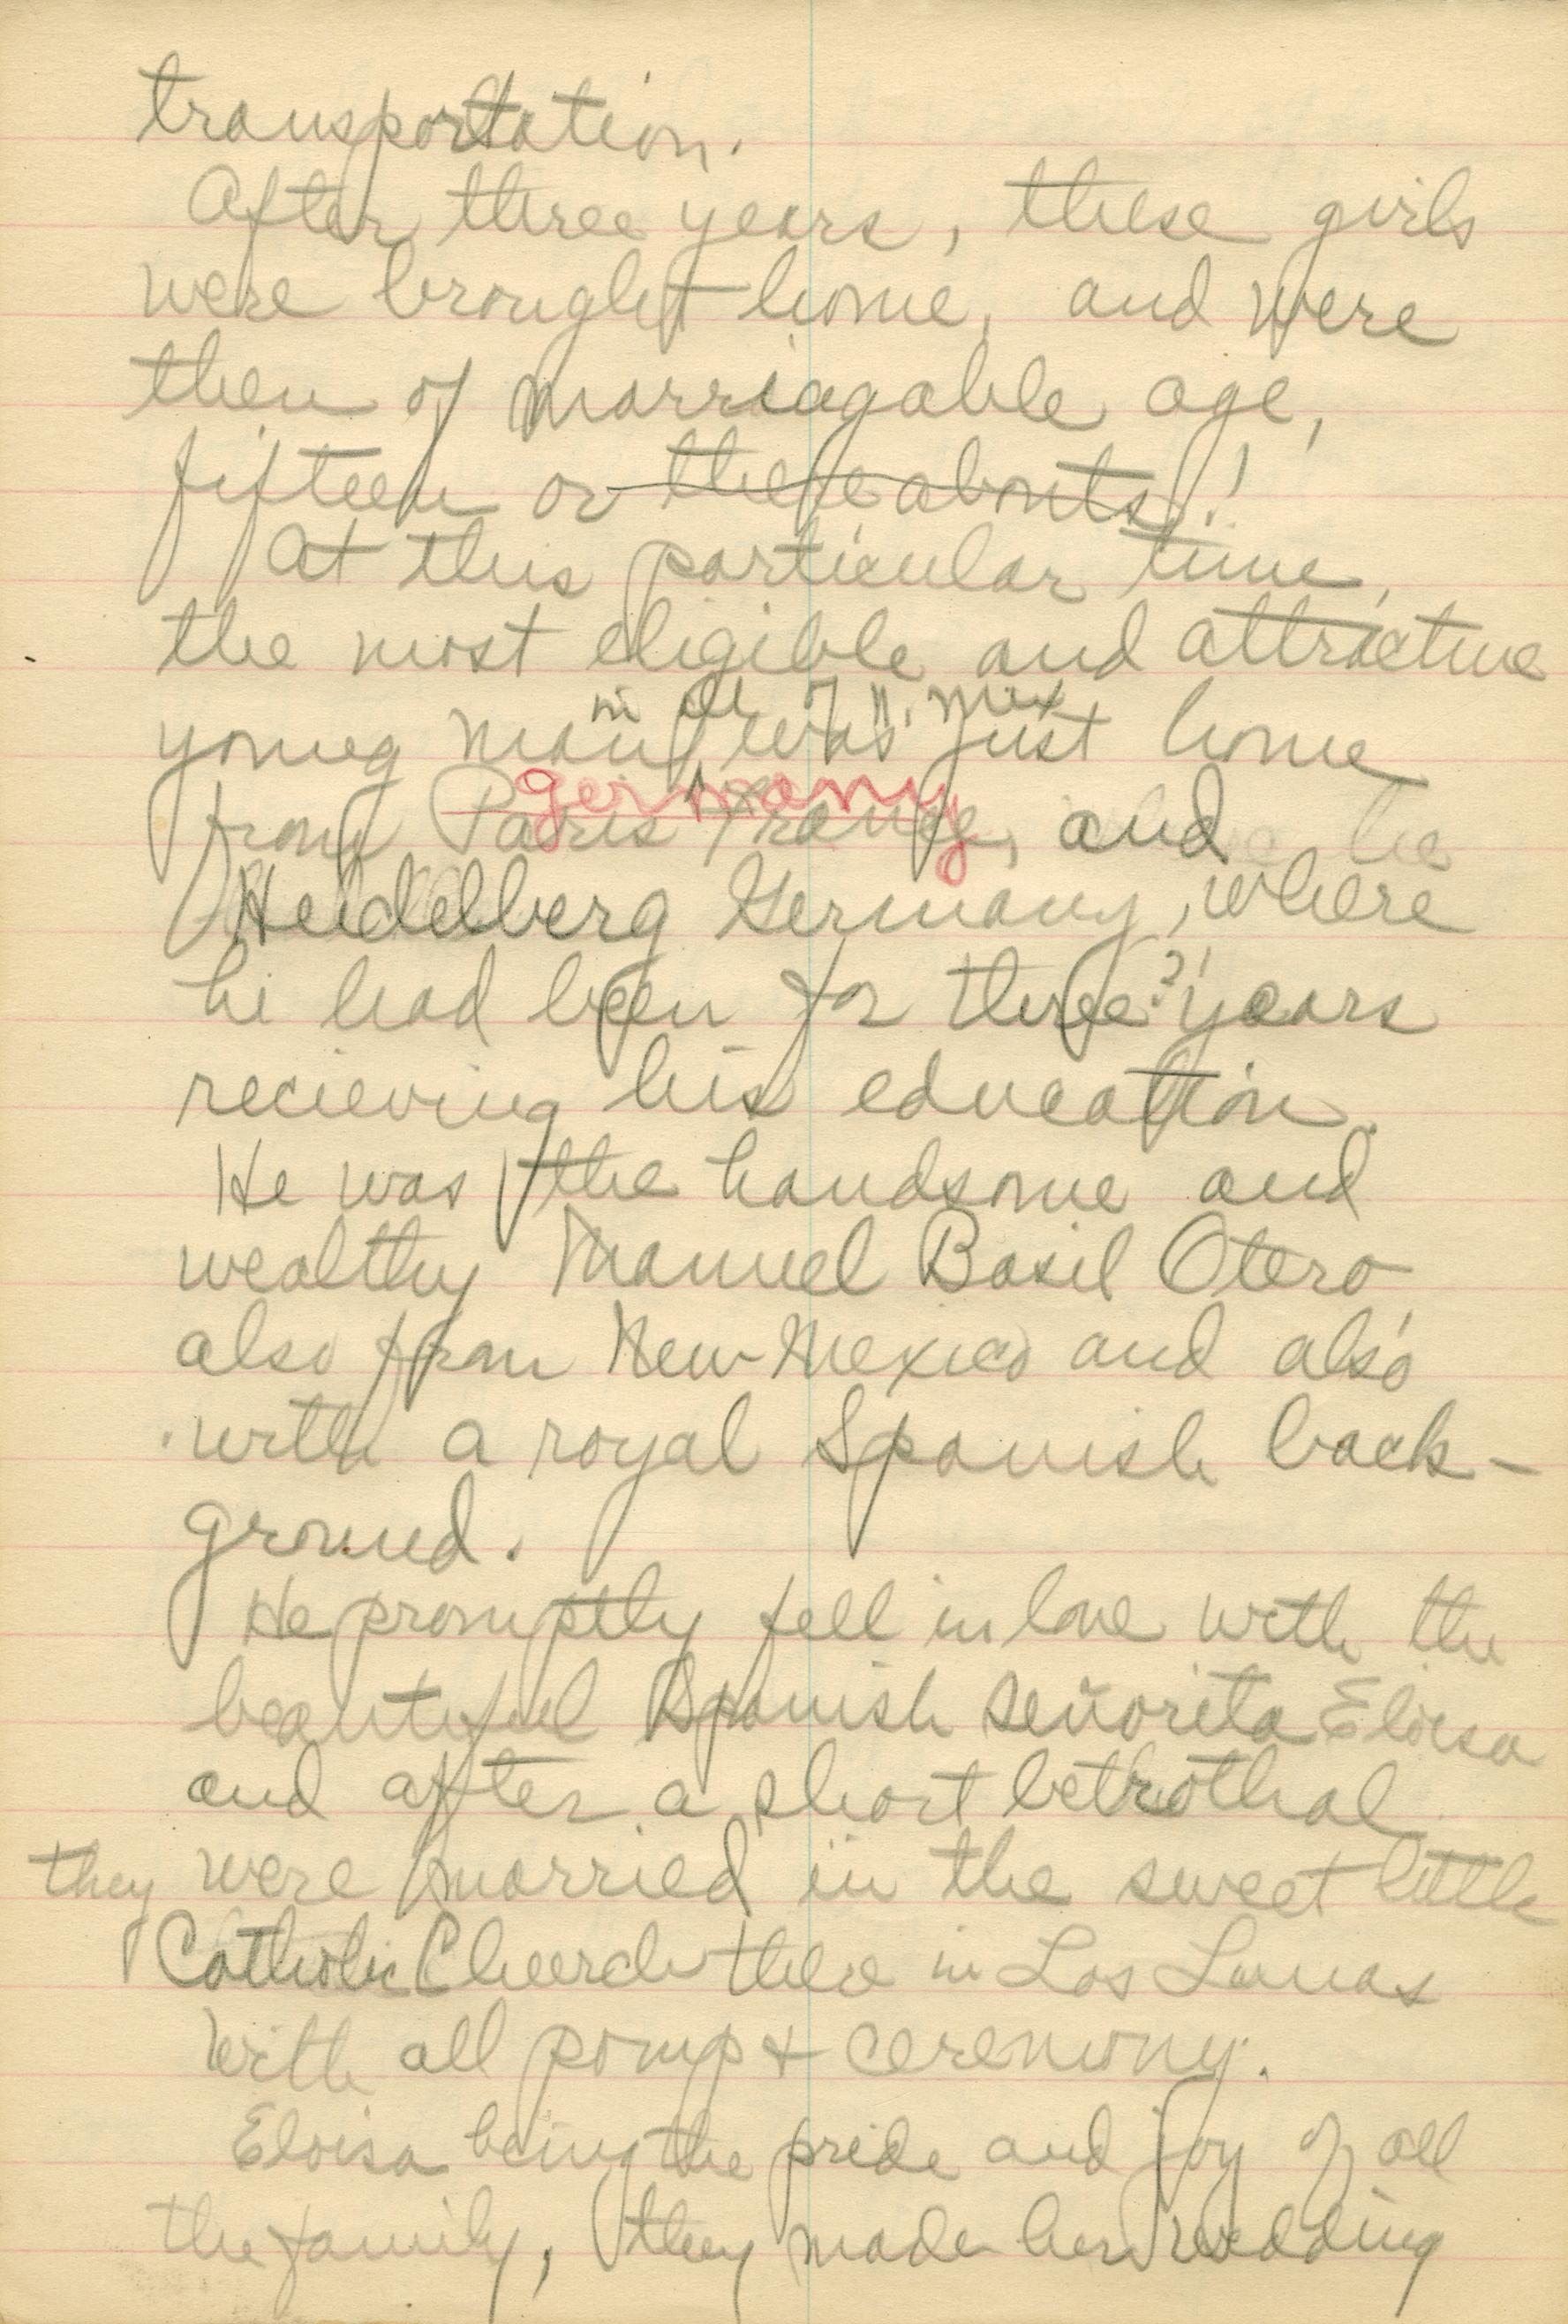 transportation.
After three years, these girls
were brought home, and were
then of marriagable age,
fifteen or thereabouts!
At this particular time,
the most eligible and attractive
in all N. Mex
young man, was just home
germany
from Paris France, and
Heidelberg Germany, where
he had been for three?! years
recieving his education.
He was the handsome and
wealthy Manuel Basil Otero
also from New Mexico and also
with a royal Spanish back-
ground.
He promptly fell in love with the
beautiful Spanish Señorita Eloisa
and after a short betrothal
they were married in the sweet little
Catholic Church there in Los Lunas
with all pomp & ceremony.
Eloisa being the pride and joy of all
the family, they made her wedding